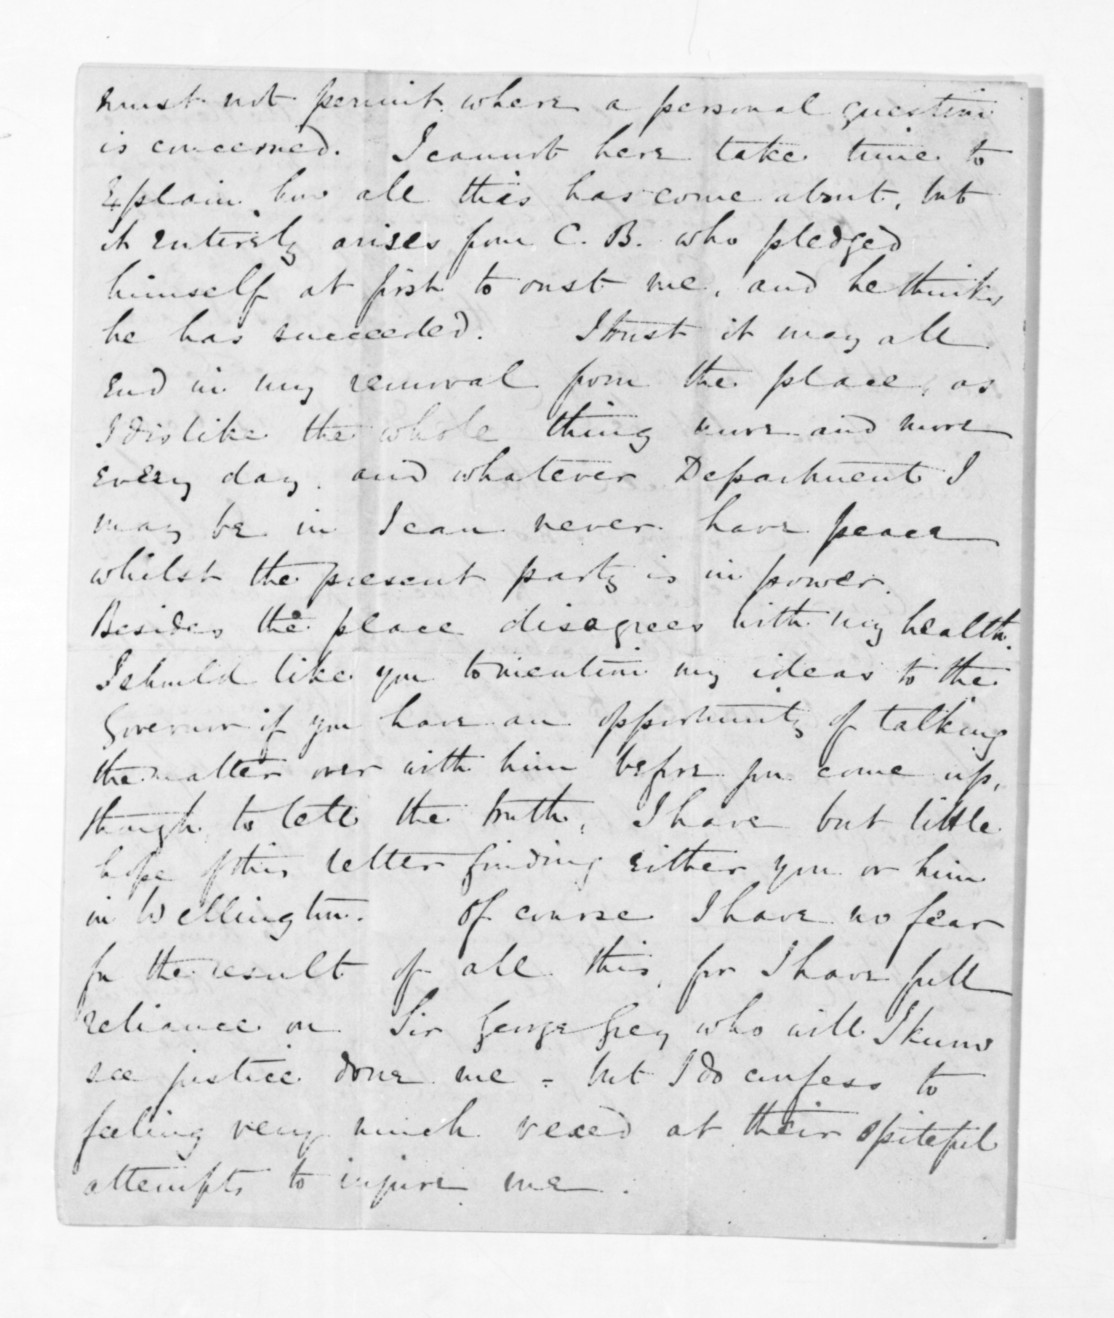 must not permit where a personal question
is concerned. I cannot here take time to
explain how all this has come about, but
it entirely arises from C. B. who pledged
himself at first to oust me, and he thinks
he has succeeded. I trust it may all
end in my removal from the place, as
I dislike the whole thing more and more
every day, and whatever Department I
may be in I can never have peace
whilst the present party is in power.
Besides the place disagrees with my health.
I should like you to mention my ideas to the
Governor if you have an opportunity of talking
the matter over with him before you come up,
though, to tell the truth, I have but little
hope of this letter finding either you or him
in Wellington. Of course I have no fear
for the result of all this, for I have full
reliance on Sir George Grey who will I know
see justice done me - but I do confess to
feeling very much vexed at their spiteful
attempts to injure me.